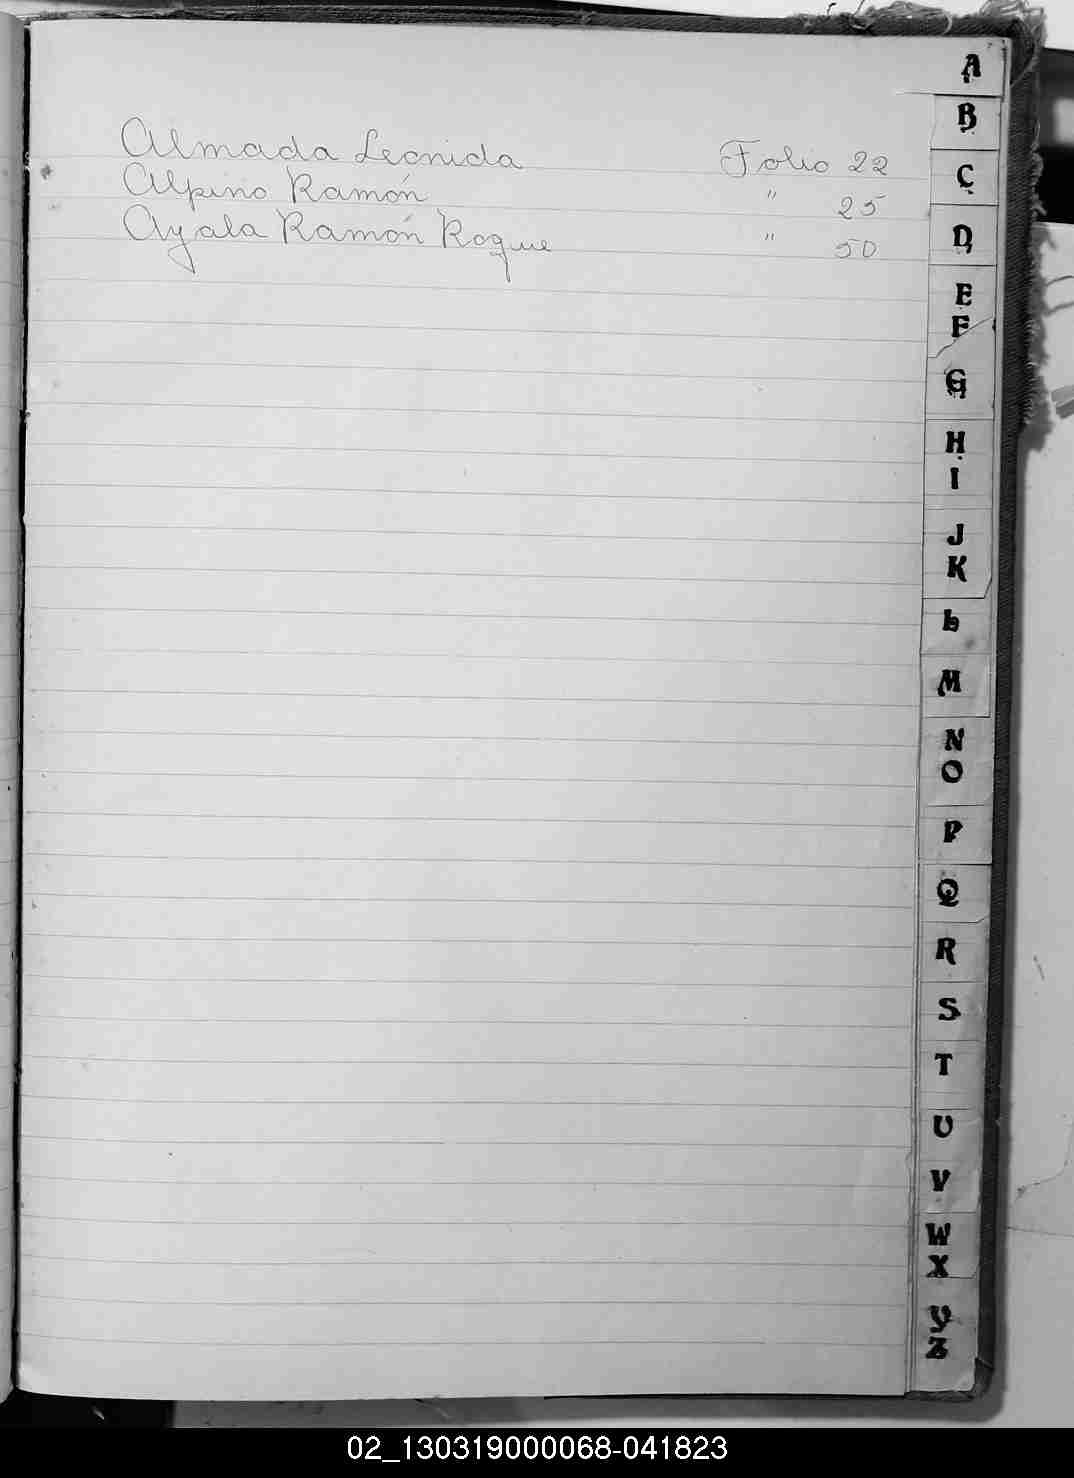 Almada Leonida Folio 22
Alpino Ramón " 25
Ayala Ramón Roque " 50
A
B
C
D
E
F
G
H
I
J
K
L
M
N
O
P
Q
R
S
T
U
V
W
X
Y
Z
02_130319000068-041823